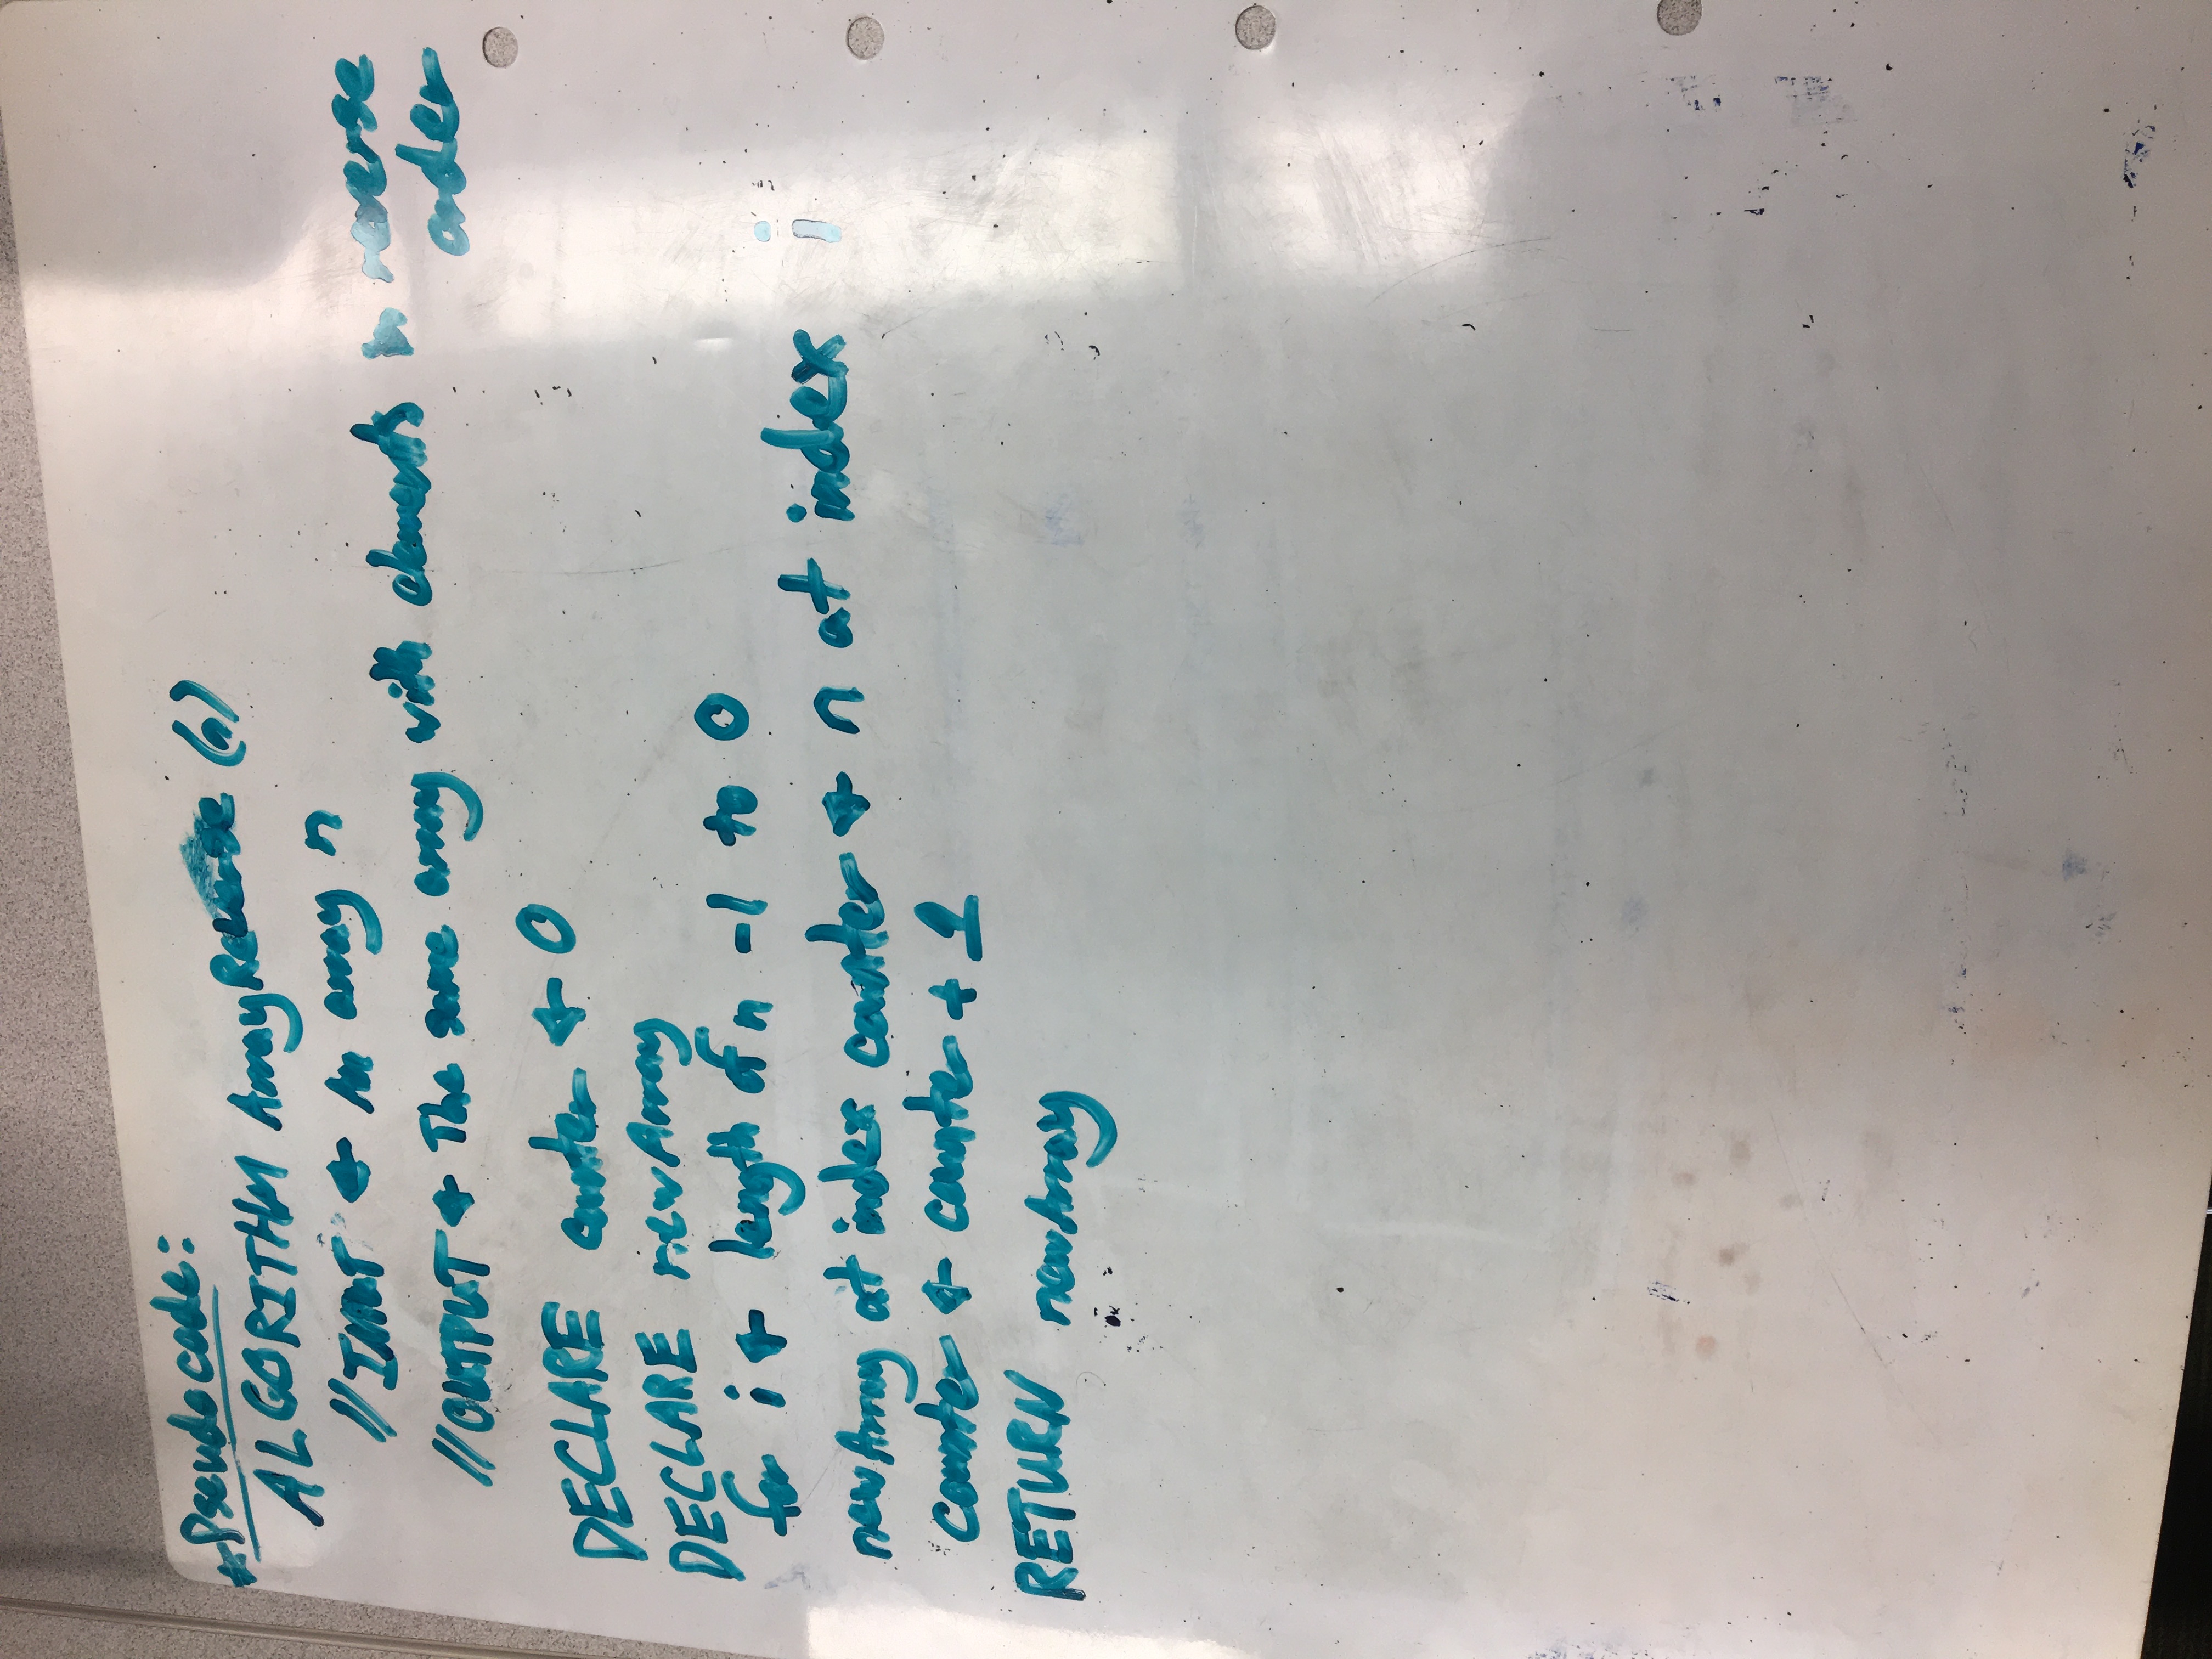 * Pseudocode:
ALGORITHM ArrayReverse (n)
// INPUT ← An array n
// OUTPUT ← The same array with elements in reverse
order
DECLARE counter ← 0
DECLARE newArray
for i ← length of n -1 to 0
newArray at index counter ← n at index i
counter ← counter + 1
RETURN newArray